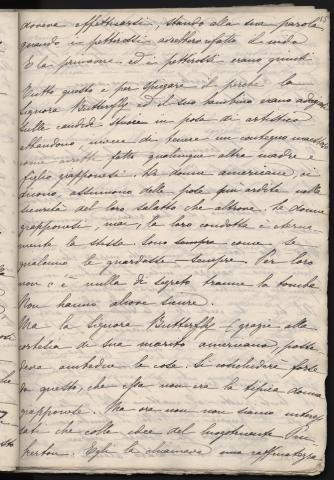 doveva effettuarsi, stando alla sua parola
quando i pettirossi avrebbero rifatto il nido
E la primavera ed i pettirossi erano giunti
Tutto questo è per spiegare il perchè la
Signora Butterfly ed il suo bambino erano
sulle candide stuoie in pose di artistico
abbandono, invece di tenere un contegno
come avrebbe fatto qualunque altra madre e
figlio giapponesi. La donna americana, ci
dicono, assumono delle pose più ardite nella
del loro salotto che altrove. Le donne
giapponesi, mai, la loro condotta è eterna-
mente la stessa. Sono sempre come se
qualcuno le guardasse - sempre. Per loro
non c'è nulla di segreto tranne la
Non hanno alcove sicure.
Ma la Signora Butterfly (grazie alla
cortesia di suo marito americano, posse
deva ambedue le cose. Si concluderà forse
da questo, che essa non era la tipica donna
giapponese. Ma ora non non siamo interes
sati che colle idee del luogotenente Pin
kerton. Egli la chiamava una raffinatezza